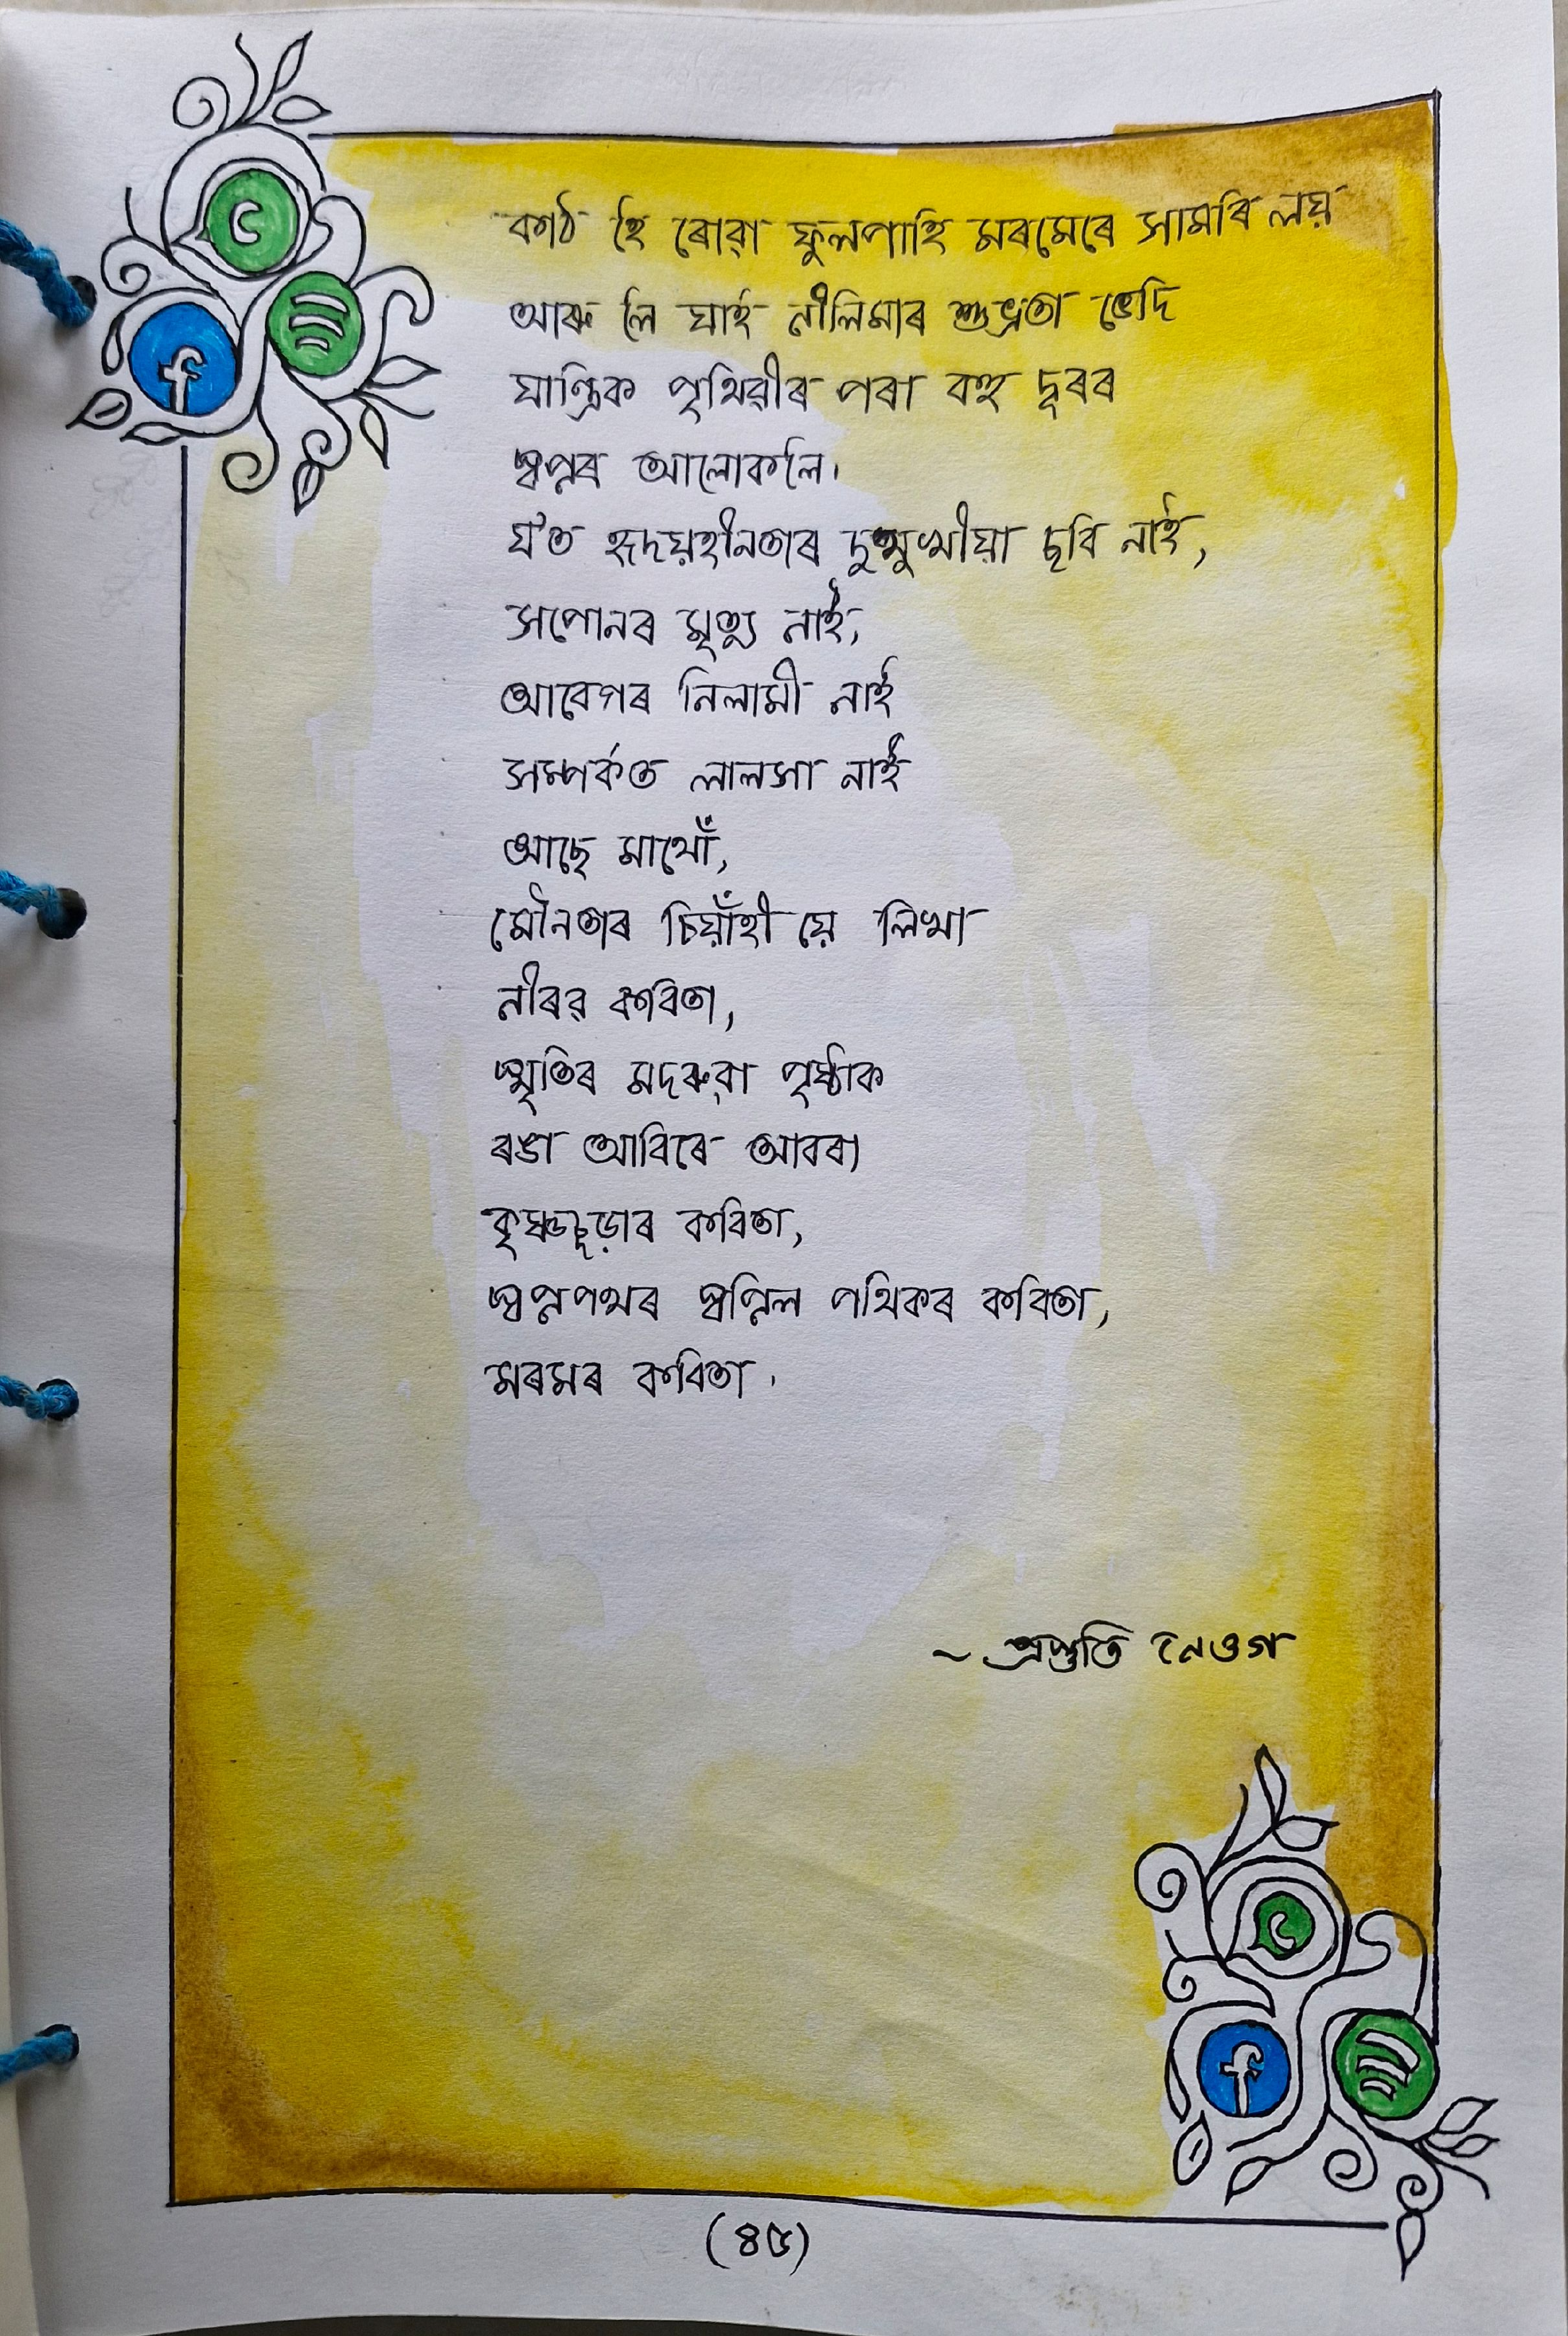 কাঠ হৈ ৰোৱা ফুলপাহি মৰমেৰে সামৰি লয়
আৰু লৈ যাই নীলিমাৰ শুভ্ৰতা ভেদি
যান্ত্ৰিক পৃথিৱীৰ পৰা বহু দূৰৰ
স্বপ্নৰ আলোকলৈ।
য'ত হৃদয়হীনতাৰ দুখমুখীয়া ছবি নাই,
সপোনৰ মৃত্যু নাই,
আবেগৰ নিলামী নাই
সম্পৰ্কত লালসা নাই
আছে মাথোঁ,
মৌনতাৰ চিয়াঁহী য়ে লিখা
নীৰৱ কবিতা,
স্মৃতিৰ মদৰুৱা পৃষ্ঠাক
ৰঙা আবিৰে আবৰা
কৃষ্ণচূড়াৰ কবিতা,
স্বপ্নপথৰ স্বপ্নিল পথিকৰ কবিতা,
মৰমৰ কবিতা।
~ প্ৰস্তুতি নেওগ
(৪৫)